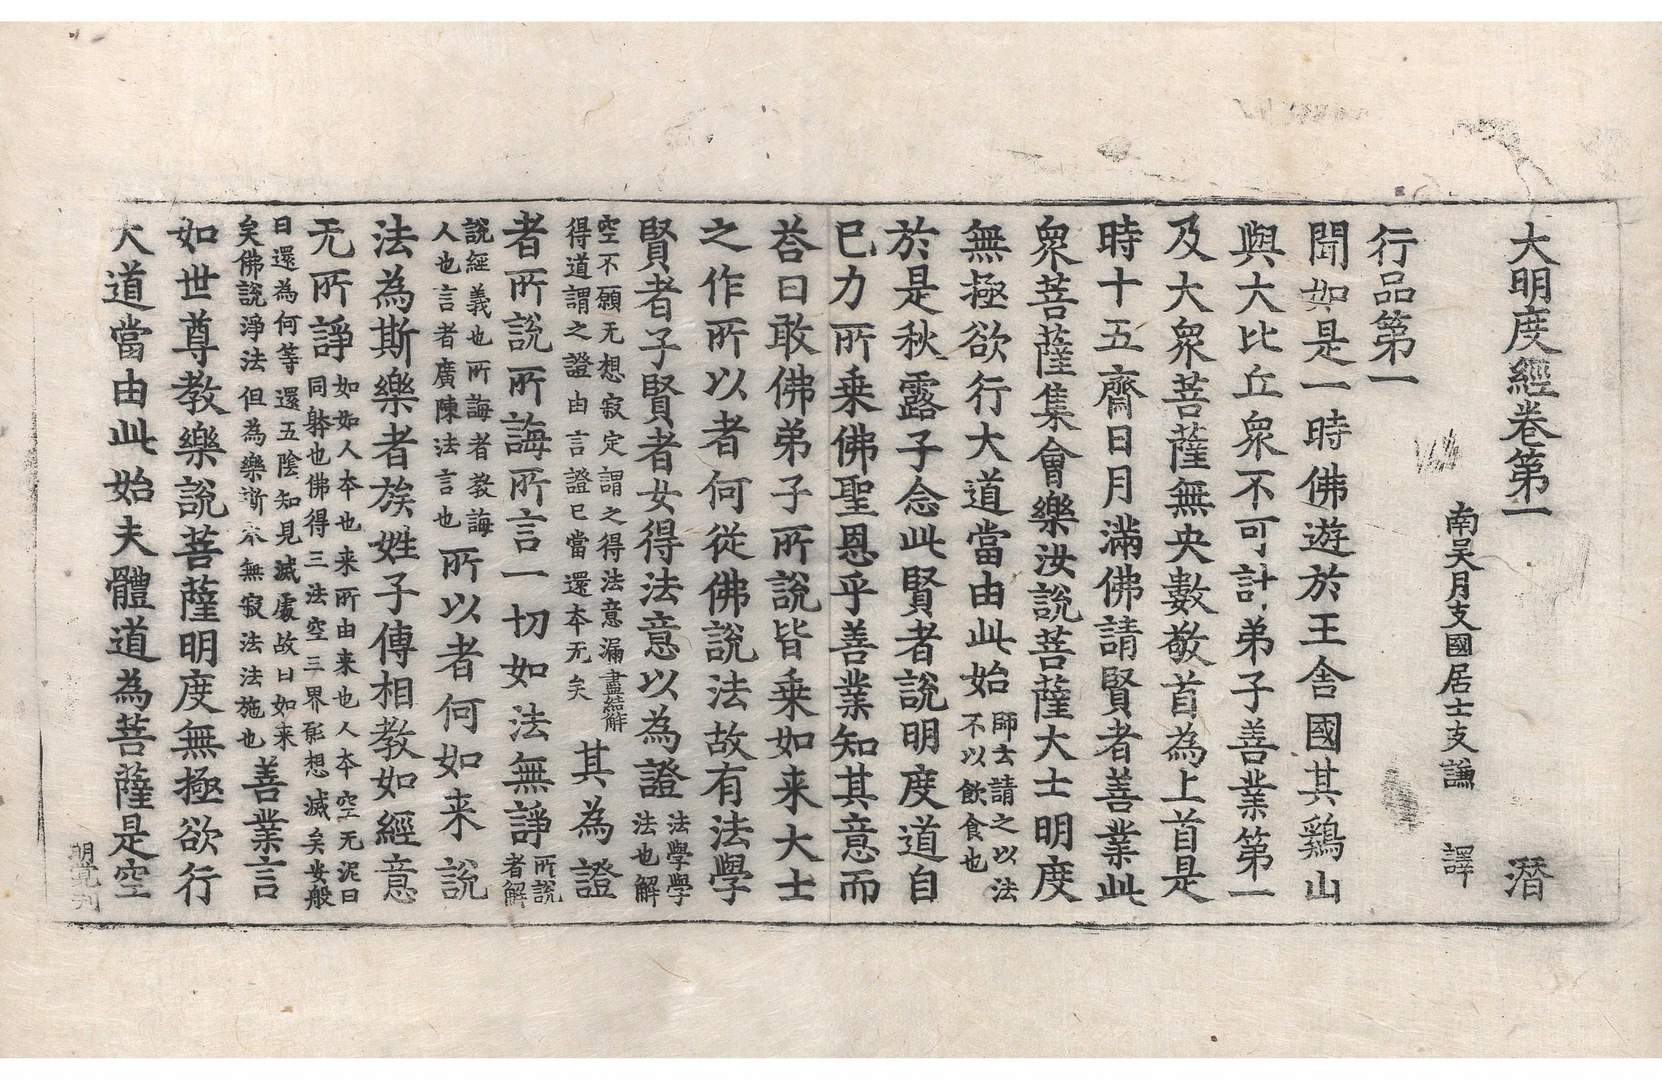 大明度經卷第一 潛
南吳月支國居士支謙 譯
行品第一
聞如是一時佛遊於王舍國其鷄山
與大比丘衆不可計弟子善業第一
及大衆菩薩無央數敬首為上首是
時十五齋日月滿佛請賢者善業此
衆菩薩集會樂汝說菩薩大士明度
無極欲行大道當由此始師云請之以法不以飲食也
於是秋露子念此賢者說明度道自
已力所乗佛聖恩乎善業知其意而
荅曰敢佛弟子所說皆乗如来大士
之作所以者何從佛說法故有法學
賢者子賢者女得法意以為證法學學法也解
空不願无想寂定謂之得法意漏盡結解得道謂之證由言證已當還夲无矣其為證
者所說所誨所言一切如法無諍所說者解
說經義也所誨者教誨人也言者廣陳法言也所以者何如来說
法為斯樂者族姓子傳相教如經意
无所諍如如人夲也来所由来也人夲空无泥曰同躰也佛得三法空三界㲋想滅矣安般
曰還為何等還五陰知見滅處故曰如来矣佛說淨法但為樂斯夲無寂法法施也善業言
如世尊教樂說菩薩明度無極欲行
大道當由此始夫體道為菩薩是空
明覺刋